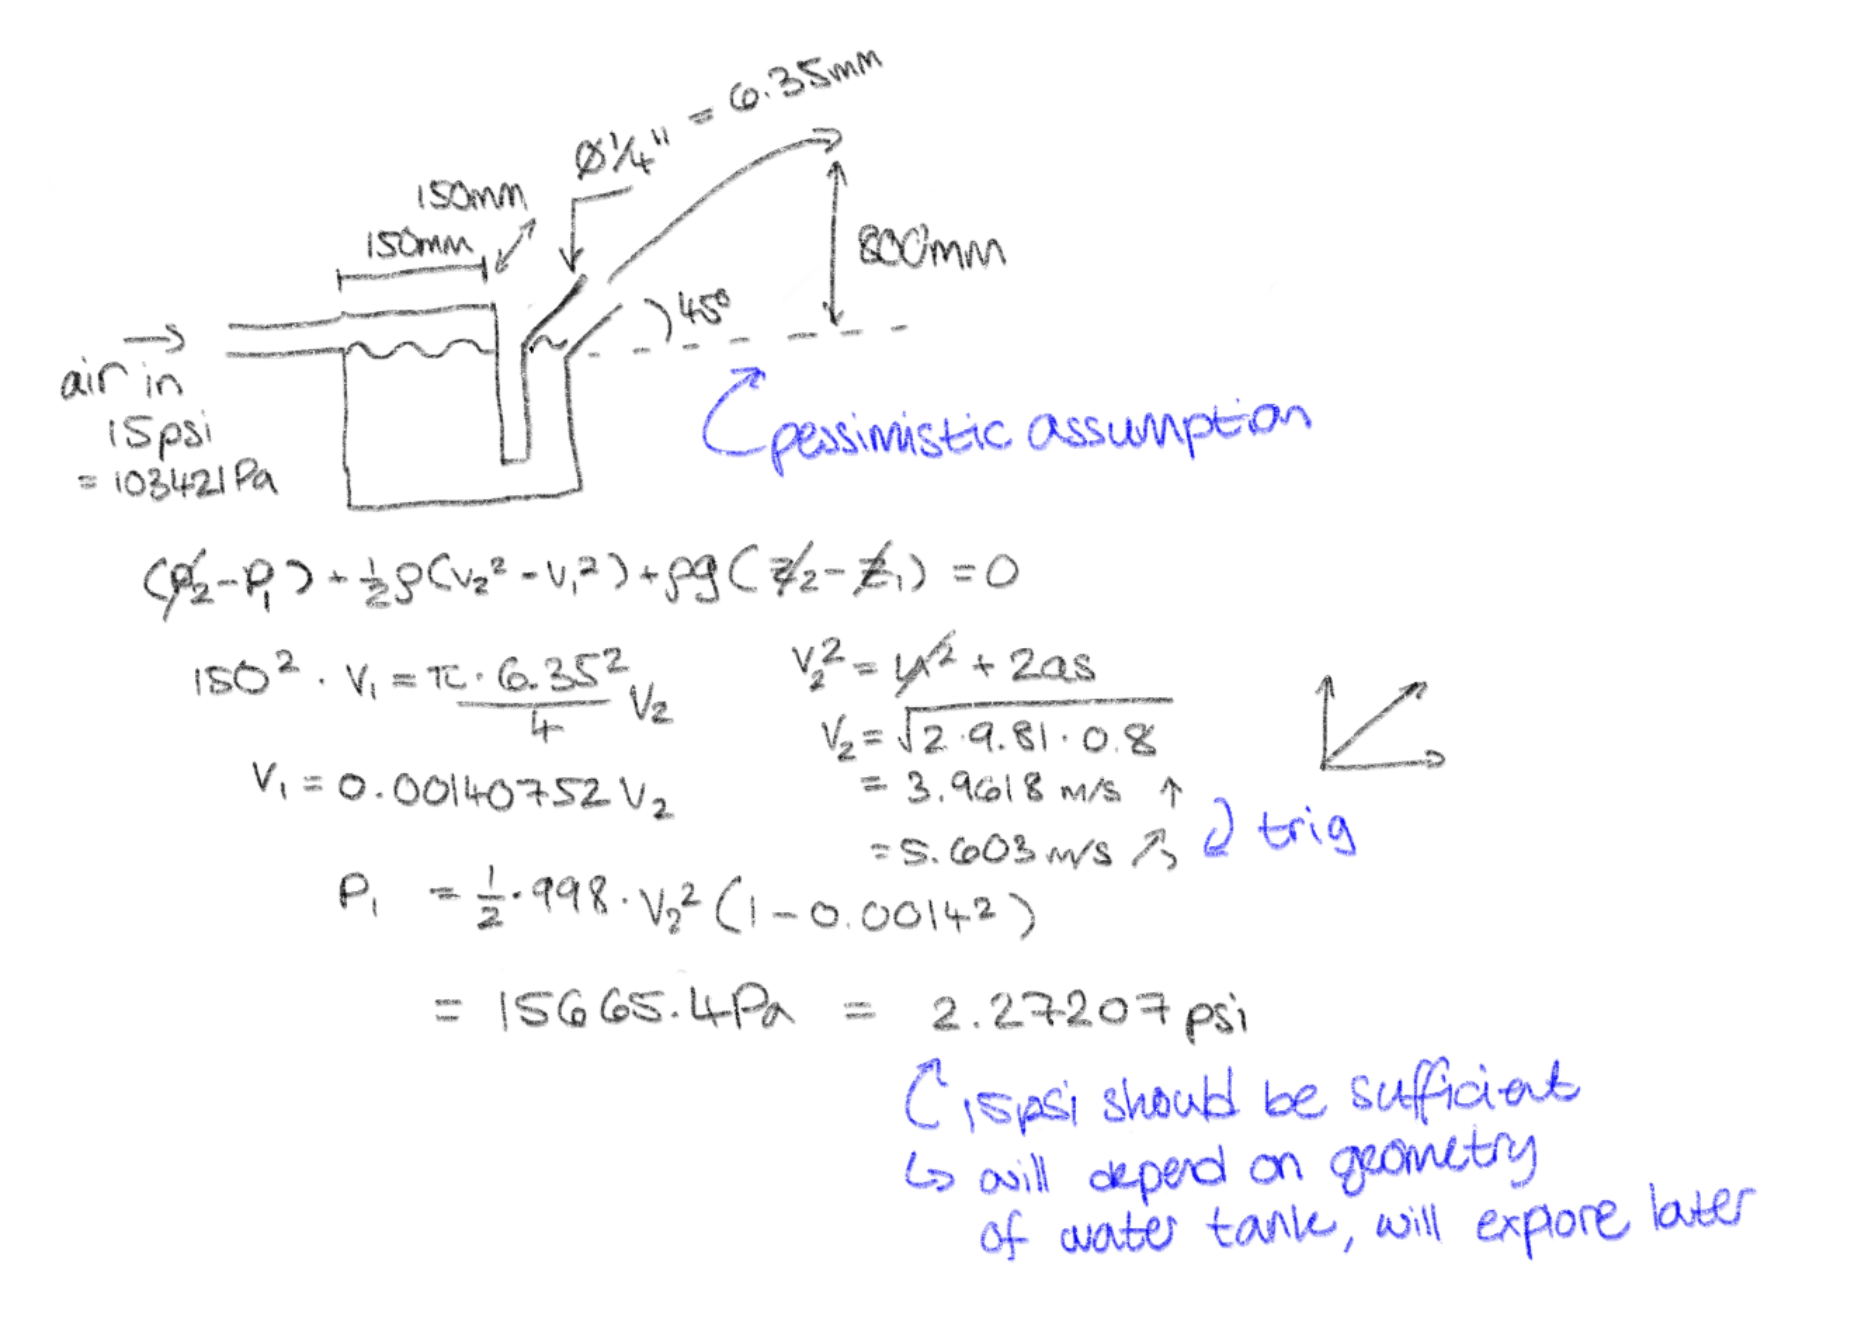 Ø1/4" = 6.35mm
150mm
150mm
800mm
45°
air in
15psi
= 103421Pa
pessimistic assumption
(p₂-p₁) + ½ρ(v₂² - v₁²) + ρg(z₂ - z₁) = 0
150² · v₁ = π · 6.35²/4 v₂
v₁ = 0.00140752 v₂
v₂² = u² + 2as
v₂ = √2·9.81·0.8
= 3.9618 m/s ↑
= 5.603 m/s ↗
trig
P₁ = ½·998·v₂²(1-0.0014²)
= 15665.4Pa = 2.27207psi
15psi should be sufficient
↳ will depend on geometry
of water tank, will explore later